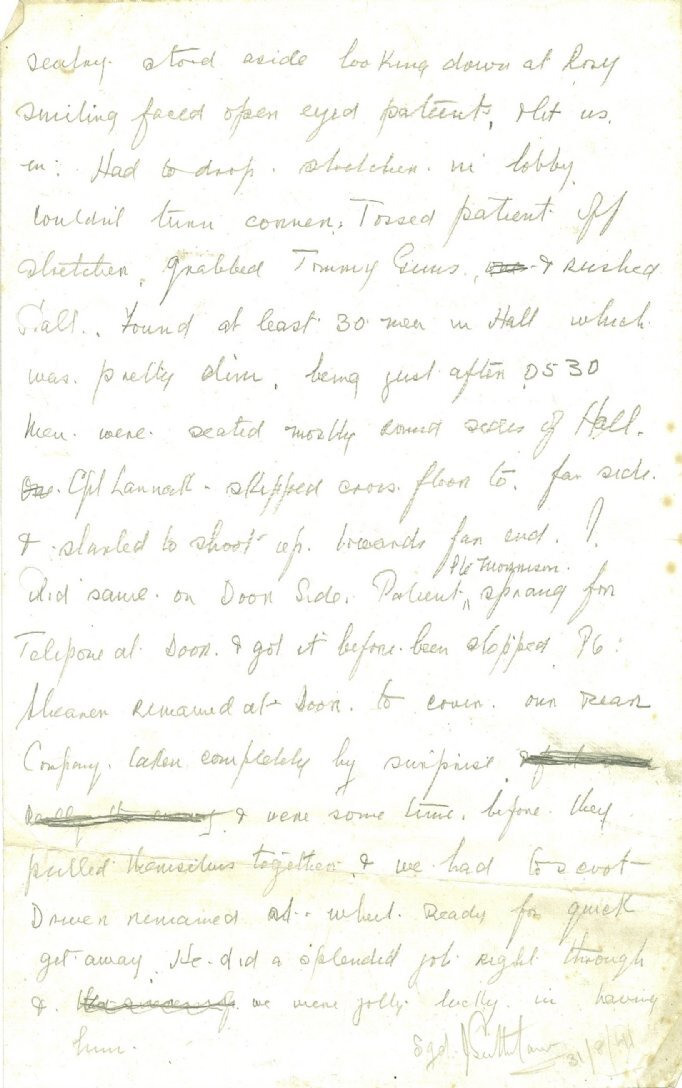 sentry stood aside looking down at Rosy
smiling faced open eyed patients, & let us
in: Had to drop stretcher in lobby
couldn't turn corner. Tossed patient off
stretcher, grabbed Tommy Guns, & rushed
Hall. Found at least 30 men in Hall which
was pretty dim, being just after 0530
Men were seated mostly round sides of Hall.
Cpl skipped cross floor to far side
& started to shoot up towards far end. I.
Pte Morrison.
did same on Door Side. Patient sprang for
Telipone at Door & got it before been stopped Pte:
Shearer remained at Door to cover our Rear
Company taken completely by surprise
& were some time before they
pulled themselves together, & we had to scoot
Driver remained at wheel ready for quick
get away. He did a splendid job right through
& we were jolly lucky in having
him.
Sgd 31/8/41